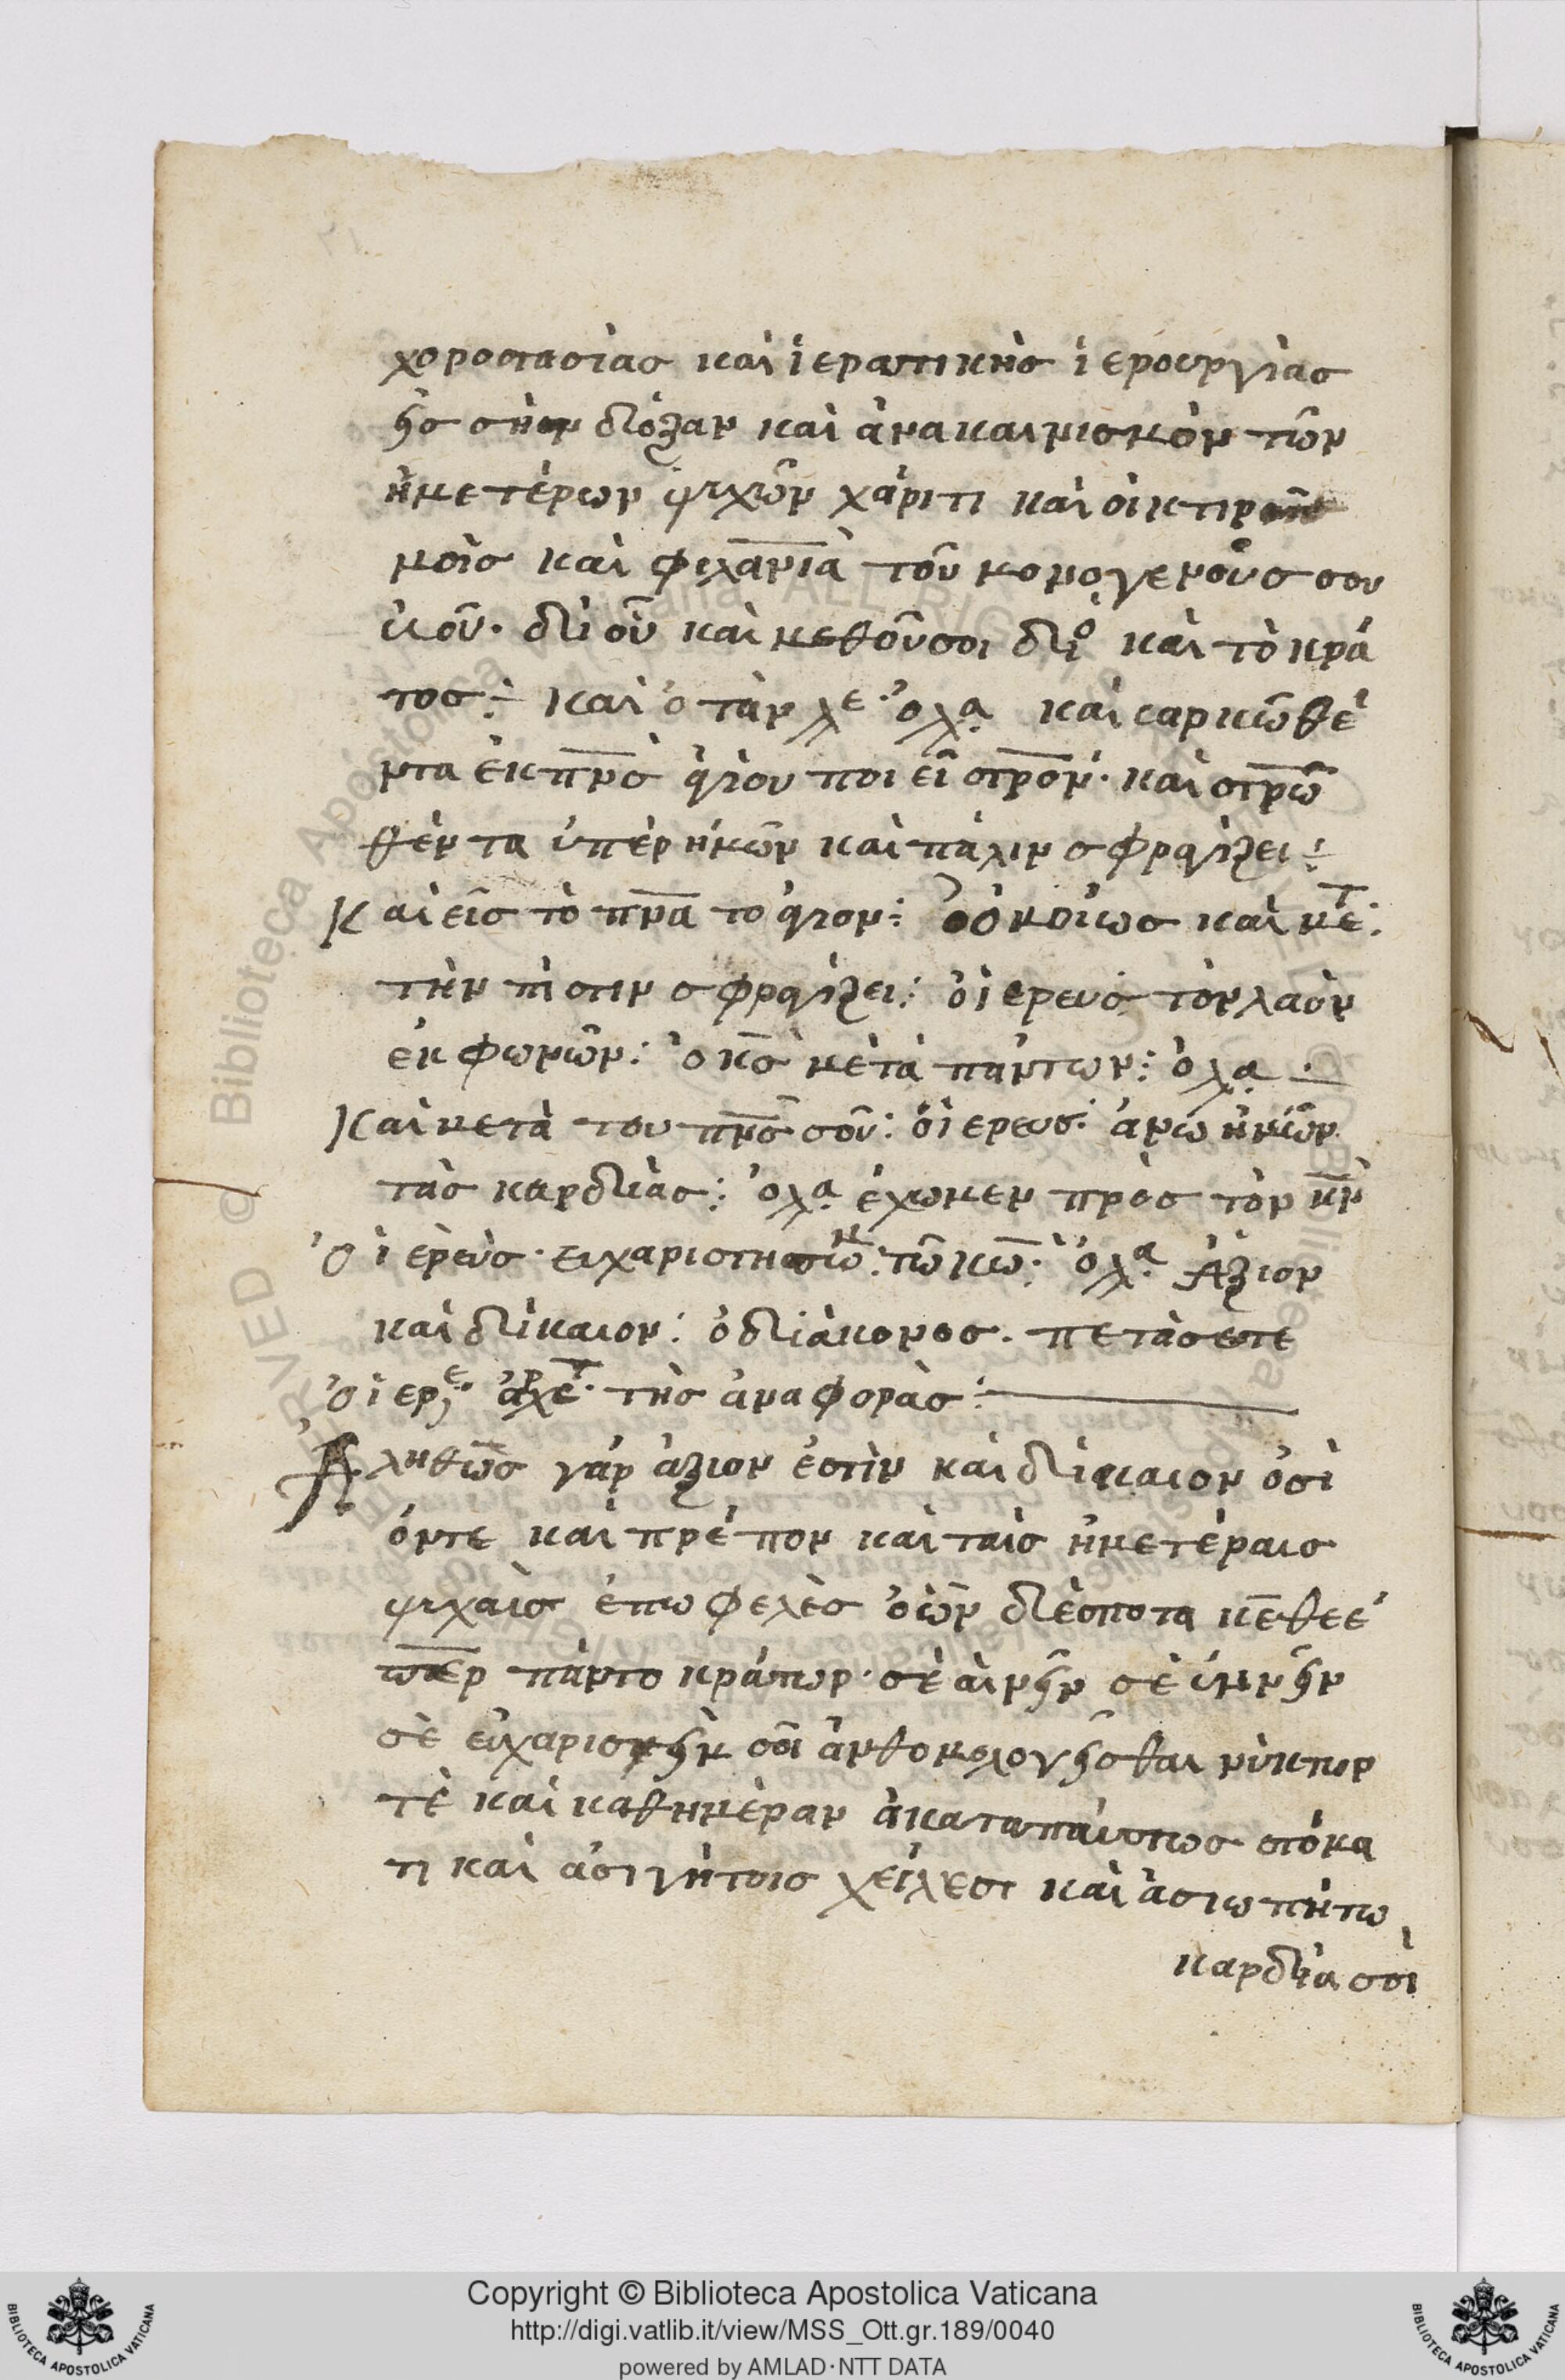 χοροστασίας καὶ ἱερατικῆς ἱερουργίας
εἰς σὴν δόξαν καὶ ἀνακαινισμὸν τῶν
ἡμετέρων ψυχῶν χάριτι καὶ οἰκτιρ
μοῖς καὶ φιλανῖα τοῦ μονογενοῦς σου
υἱοῦ· δι οὗ καὶ μεθοῦ σοι δὸ καὶ τὸ κρά
τος: καὶ ὁτὰν λε· ὁ λα καὶ σαρκωθέ
ντα ἐκ πνς ἁγίου ποιεῖ στρον· καὶ στρω
θέντα ὑπὲρ ἡμῶν καὶ πάλιν σφραγίζει:
Καὶ εἰς τὸ πνα το ἅγιον: ὁμοίως καὶ μτ:
τὴν πίστιν σφραγίζει: ὁ ἱερευς τὸν λαὸν
ἐκφωνῶν: ὁ κς μετὰ πάντων: ὁ λα
Καὶ μετὰ του πνς σοῦ: ὁ ἱερευς· ἄνω ἡμῶν
τὰς καρδίας: ὁ λα ἔχωμεν πρὸς τὸν κν
ὁ ἱερεὺς· ευχαριστησῶμ: τῶ κω· ὁ λα Ἄξιον
καὶ δίκαιον: ὁ διάκονος· πετάσετε
ὁ ἱερε ἄρχετ· τῆς ἀναφορᾶς:
Ἀληθῶς γάρ ἄξιον ἐστὶν καὶ δίκαιον ὅσι
όντε καὶ πρέπον καὶ ταῖς ἡμετέραις
ψυχαῖς ἐπωφελὲς ὁ ὢν δέσποτα κε θεέ
περ παντοκράτωρ· σὲ αἰνεῖν σὲ ὑμνεῖν
σὲ εὐχαριστεῖν σοὶ ἀνθομολογεῖσθαι νύκτωρ
τὲ καὶ καθημέραν ἀκαταπαύστως στόμα
τι καὶ ἀσιγήτοις χείλεσι καὶ ἀσιωπήτω
καρδία σοὶ
Copyright © Biblioteca Apostolica Vaticana
http://digi.vatlib.it/view/MSS_Ott.gr.189/0040
powered by AMLAD·NTT DATA
BIBLIOTECA APOSTOLICA VATICANA
BIBLIOTECA APOSTOLICA VATICANA